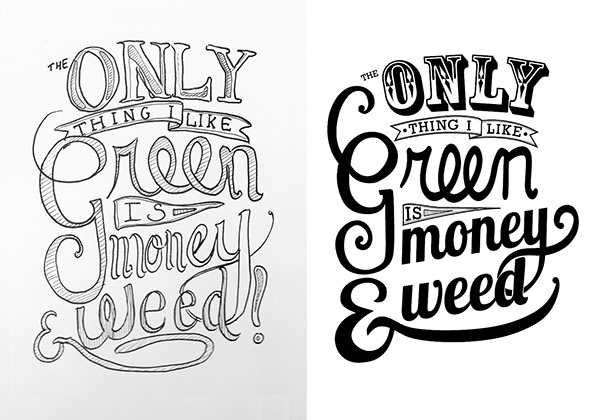 THE ONLY
THING I LIKE
Green
IS
money
& weed!
THE ONLY
• THING I LIKE •
Green
IS
money
& weed